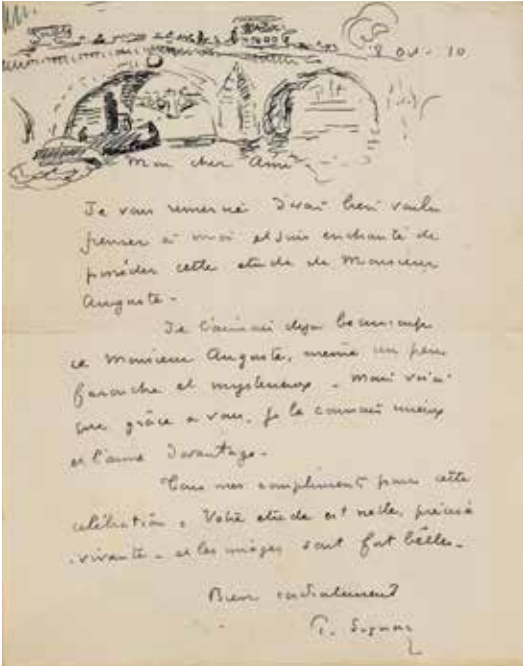 10
Mon cher Ami
Je vous remercie d'avoir bien voulu
penser à moi et suis enchanté de
posséder cette étude de Monsieur
Auguste -
Je l'aimais déjà beaucoup
ce Monsieur Auguste, même un peu
farouche et mystérieux - Mais voici
que grâce à vous, je le connais mieux
et l'aime davantage -
Tous mes compliments pour cette
célébration. Votre étude est nette, précise
vivante - et les images sont fort belles -
Bien cordialement
P. Signac